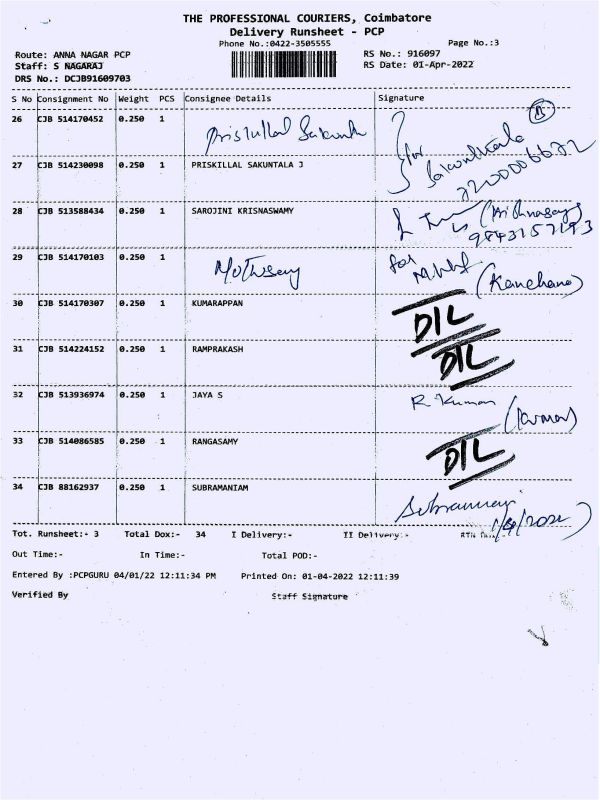 THE PROFESSIONAL COURIERS, Coimbatore
Delivery Runsheet - PCP
Phone No.:0422-3505555
Page No.:3
Route: ANNA NAGAR PCP
RS No.: 916097
Staff: S NAGARAJ
RS Date: 01-Apr-2022
DRS No.: DCJB91609703
S No Consignment No Weight PCS Consignee Details Signature
26 CJB 514170452 0.250 1 Priskillal Sakunta
27 CJB 514230098 0.250 1 PRISKILLAL SAKUNTALA J for Sakunthala
28 CJB 513588434 0.250 1 SAROJINI KRISNASWAMY
9843157193
29 CJB 514170103 0.250 1 for (Kanchana)
30 CJB 514170307 0.250 1 KUMARAPPAN D/L
31 CJB 514224152 0.250 1 RAMPRAKASH D/L
32 CJB 513936974 0.250 1 JAYA S R. Kumar
33 CJB 514086585 0.250 1 RANGASAMY D/L
34 CJB 88162937 0.250 1 SUBRAMANIAM
1/4/2022
Tot. Runsheet:- 3 Total Dox:- 34 I Delivery:- II Delivery:- RTN Dox:-
Out Time:- In Time:- Total POD:-
Entered By :PCPGURU 04/01/22 12:11:34 PM Printed On: 01-04-2022 12:11:39
Verified By Staff Signature